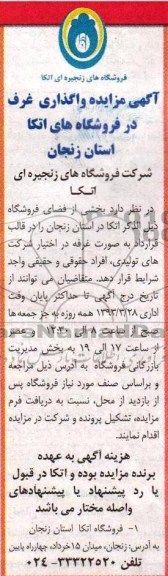 فروشگاه های زنجیره ای اتکا
آگهی مزایده واگذاری غرف
در فروشگاه های اتکا
استان زنجان
شرکت فروشگاه های زنجیره ای
اتکا
در نظر دارد بخشی از فضای فروشگاه
ذیل الذکر اتکا در استان زنجان را در قالب
قرارداد به صورت غرفه در اختیار شرکت
های تولیدی، افراد حقوقی و حقیقی واجد
شرایط قرار دهد. متقاضیان می توانند از
تاریخ درج آگهی تا حداکثر پایان وقت
اداری ۱۳۹۳/۳/۲۸ همه روزه به جز جمعه ها
صبح از ساعت ۸ الی ۱۲:۳۰ و عصر
از ساعت ۱۷ الی ۱۹ به بخش مدیریت
بازرگانی فروشگاه به آدرس ذیل مراجعه
و براساس صنف مورد نیاز فروشگاه پس
از بازدید از محل، نسبت به دریافت فرم
مزایده، تشکیل پرونده و شرکت در مزایده
اقدام نمایند.
هزینه آگهی به عهده
برنده مزایده بوده و اتکا در قبول
یا رد پیشنهاد یا پیشنهادهای
واصله مختار می باشد
۱- فروشگاه اتکا استان زنجان
به آدرس: زنجان، میدان ۱۵خرداد، چهارراه پایین
تلفن ۳۳۳۲۲۵۲۰-۰۲۴